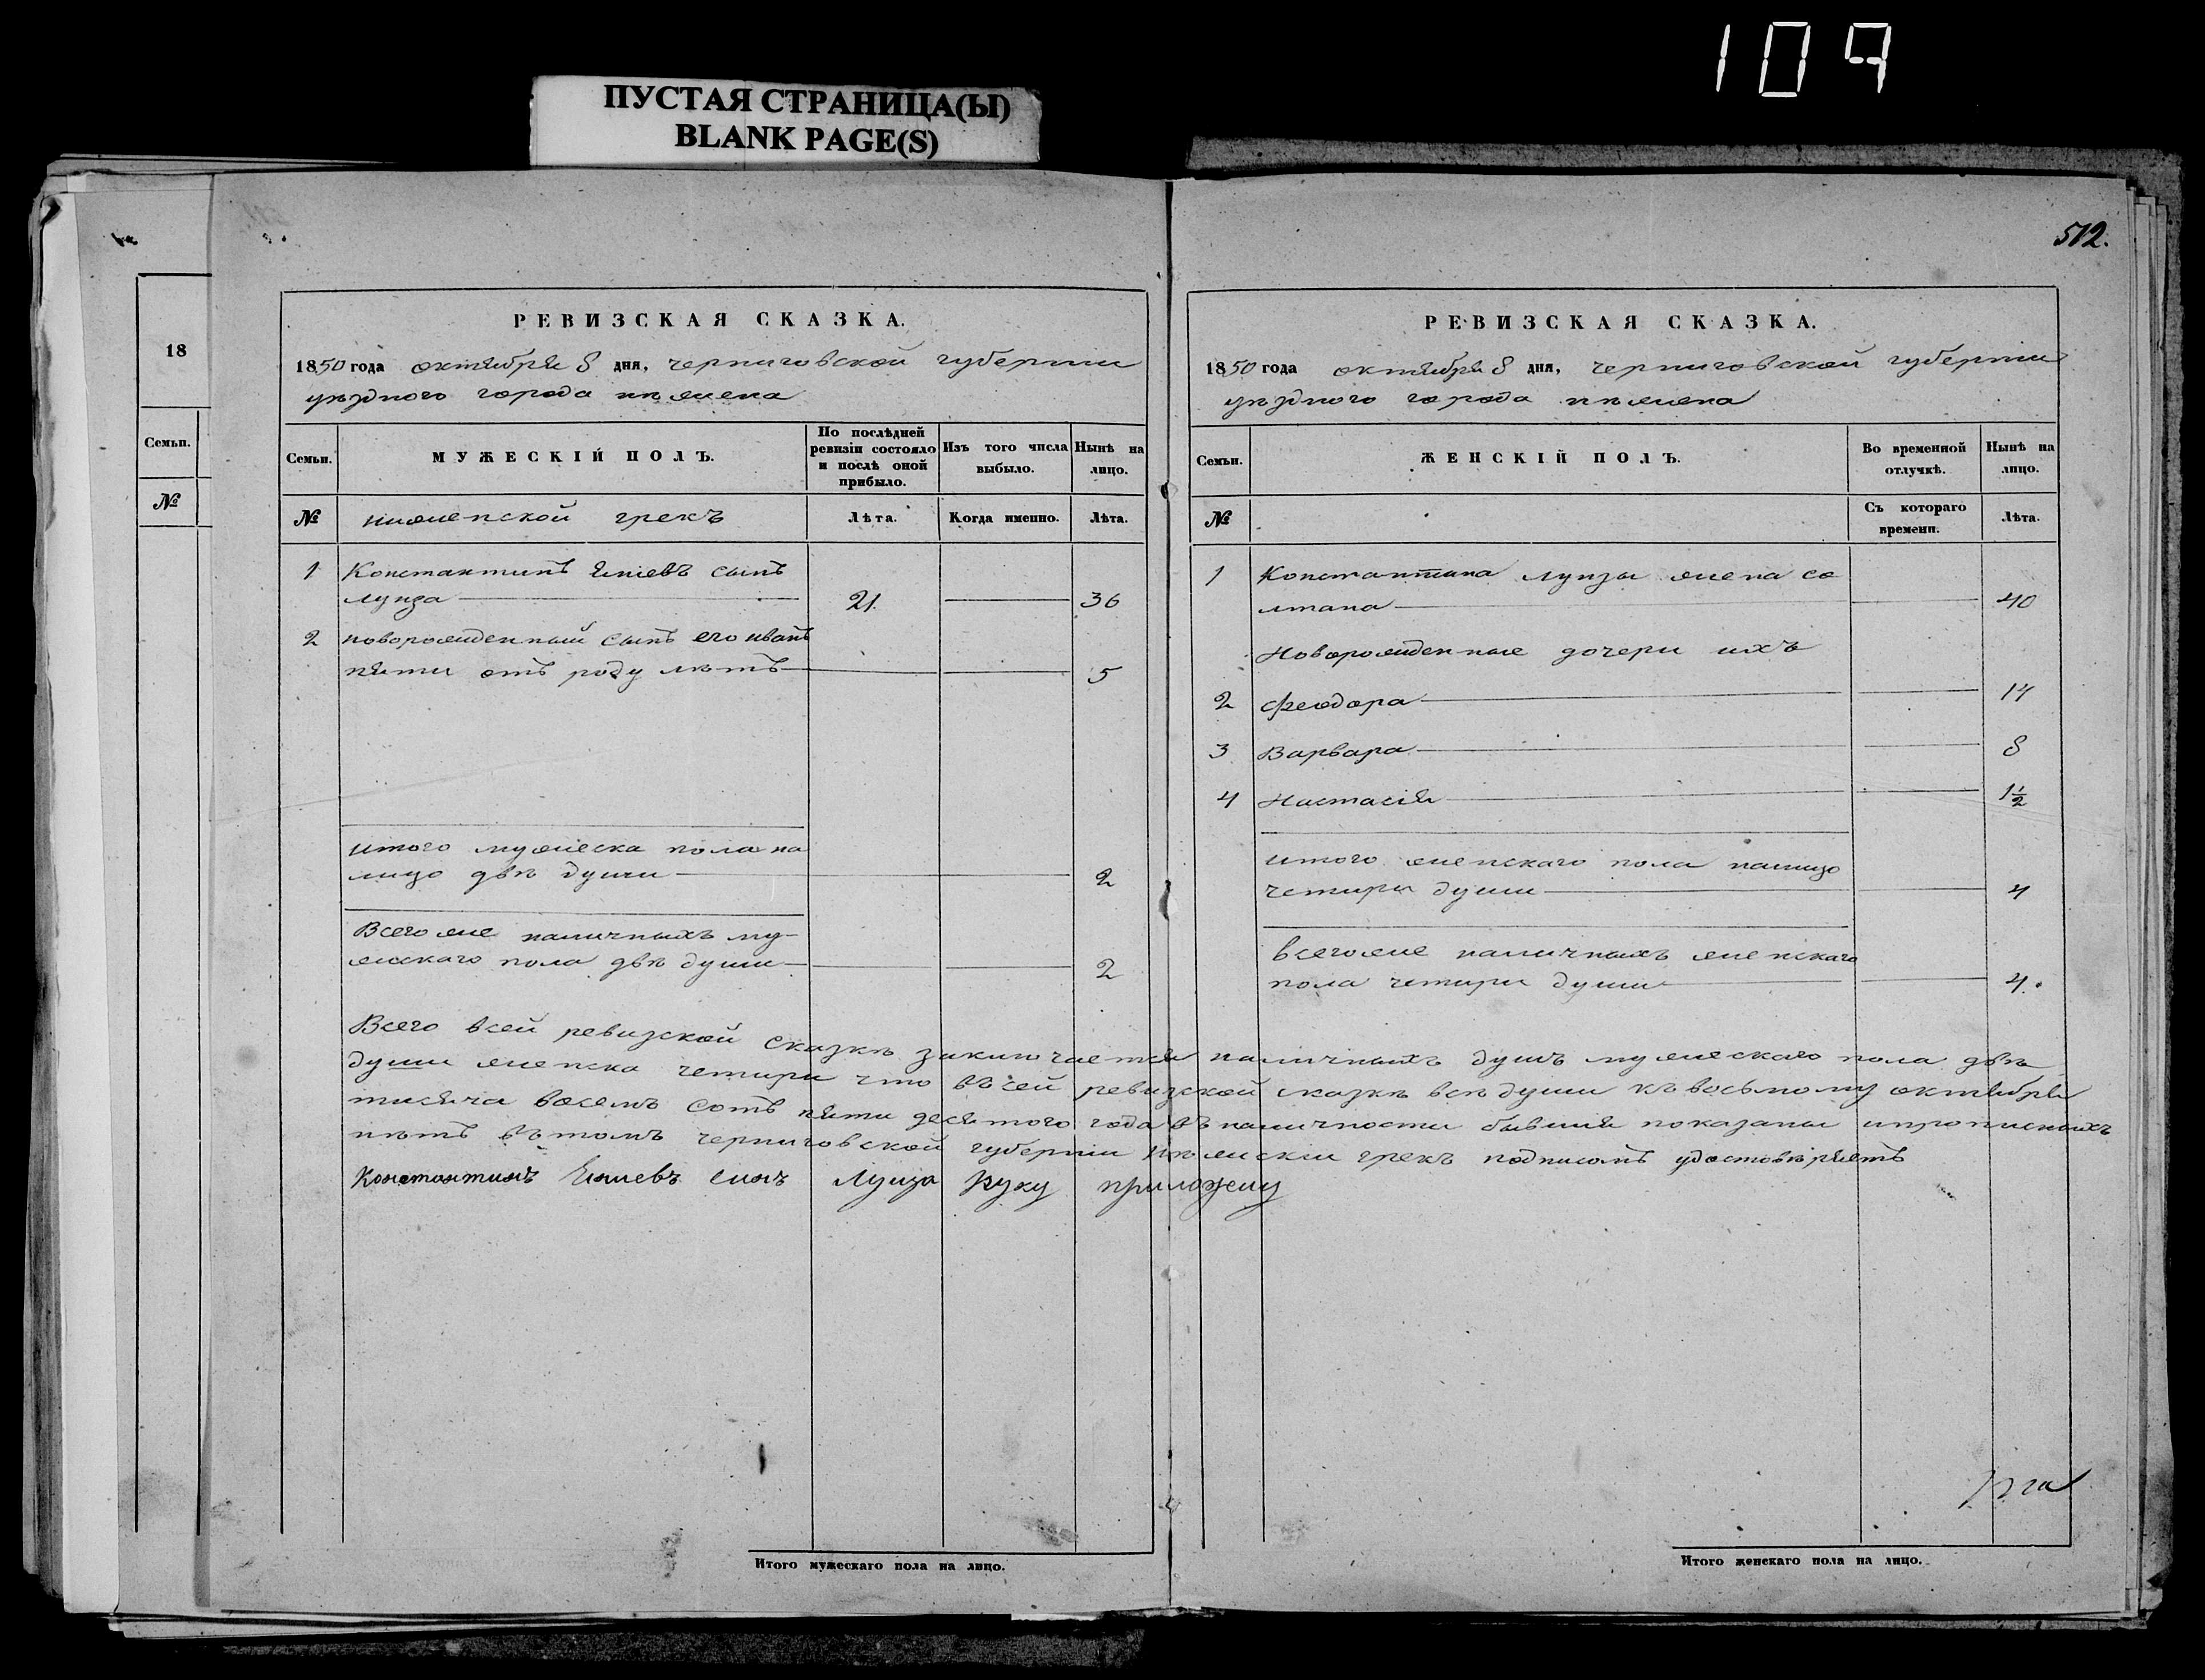 109
ПУСТАЯ СТРАНИЦА(Ы)
BLANK PAGE(S)
512.
18
Семьи.
№
РЕВИЗСКАЯ СКАЗКА.
1850 года октября 8 дня, черниговской губернии
уѣзднаго города нѣжена
Семьи.
МУЖЕСКІЙ ПОЛЪ.
По послѣдней ревизіи состояло и послѣ оной прибыло.
Изъ того числа выбыло.
Нынѣ на лицо.
№
нѣженской грекъ
Лѣта.
Когда именно.
Лѣта.
1 Константинъ Яніевъ сынъ
лунза 21. 36
2 новорожденный сынъ его иванъ
пяти отъ роду лѣтъ 5
итого мужеска пола на
лицо двѣ души 2
Всего же наличныхъ му-
жескаго пола двѣ души 2
РЕВИЗСКАЯ СКАЗКА.
1850 года октября 8 дня, черниговской губерніи
уѣзднаго города нѣжена
Семьи.
ЖЕНСКІЙ ПОЛЪ.
Во временной отлучкѣ.
Нынѣ на лицо.
№
Съ котораго времени.
Лѣта.
1 Константина лунзы жена со
лтана 40
Новорожденные дочери ихъ
2 феодора 14
3 Варвара 8
4 Настасія 1½
итого женскаго пола налицо
четыри души 4
всегоже наличныхъ женскаго
пола четыри души 4.
Всего всей ревизской сказкѣ заключается наличныхъ душъ мужескаго пола двѣ
души женска четыри что въ сей ревизской сказкѣ всѣ души къ восьмому октября
тисяча восемъ сотъ пяти десятого года въ наличности бывшия показаны ипрописныхъ
нѣтъ въ томъ черниговской губерніи нѣжнскіи грекъ подписомъ удостовѣряетъ
Константинъ Яниевъ синъ Лунза Руку приложену
Итого мужескаго пола на лицо.
Итого женскаго пола на лицо.